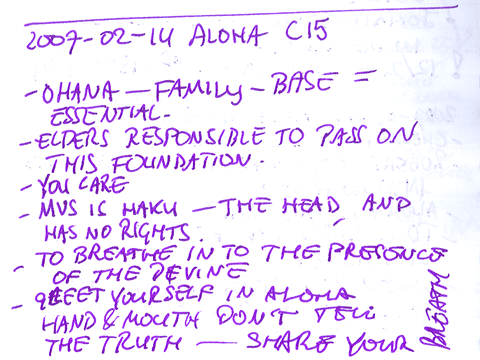 2007-02-14 ALOHA C15
- OHANA — FAMILY - BASE =
ESSENTIAL.
- ELDERS RESPONSIBLE TO PASS ON
THIS FOUNDATION.
- YOU CARE
- MVS IS HAKU — THE HEAD, AND
HAS NO RIGHTS.
- TO BREATHE IN TO THE PRESENCE
OF THE DEVINE
- GREET YOURSELF IN ALOHA
HAND & MOUTH DON'T TELL
THE TRUTH — SHARE YOUR
BREATH